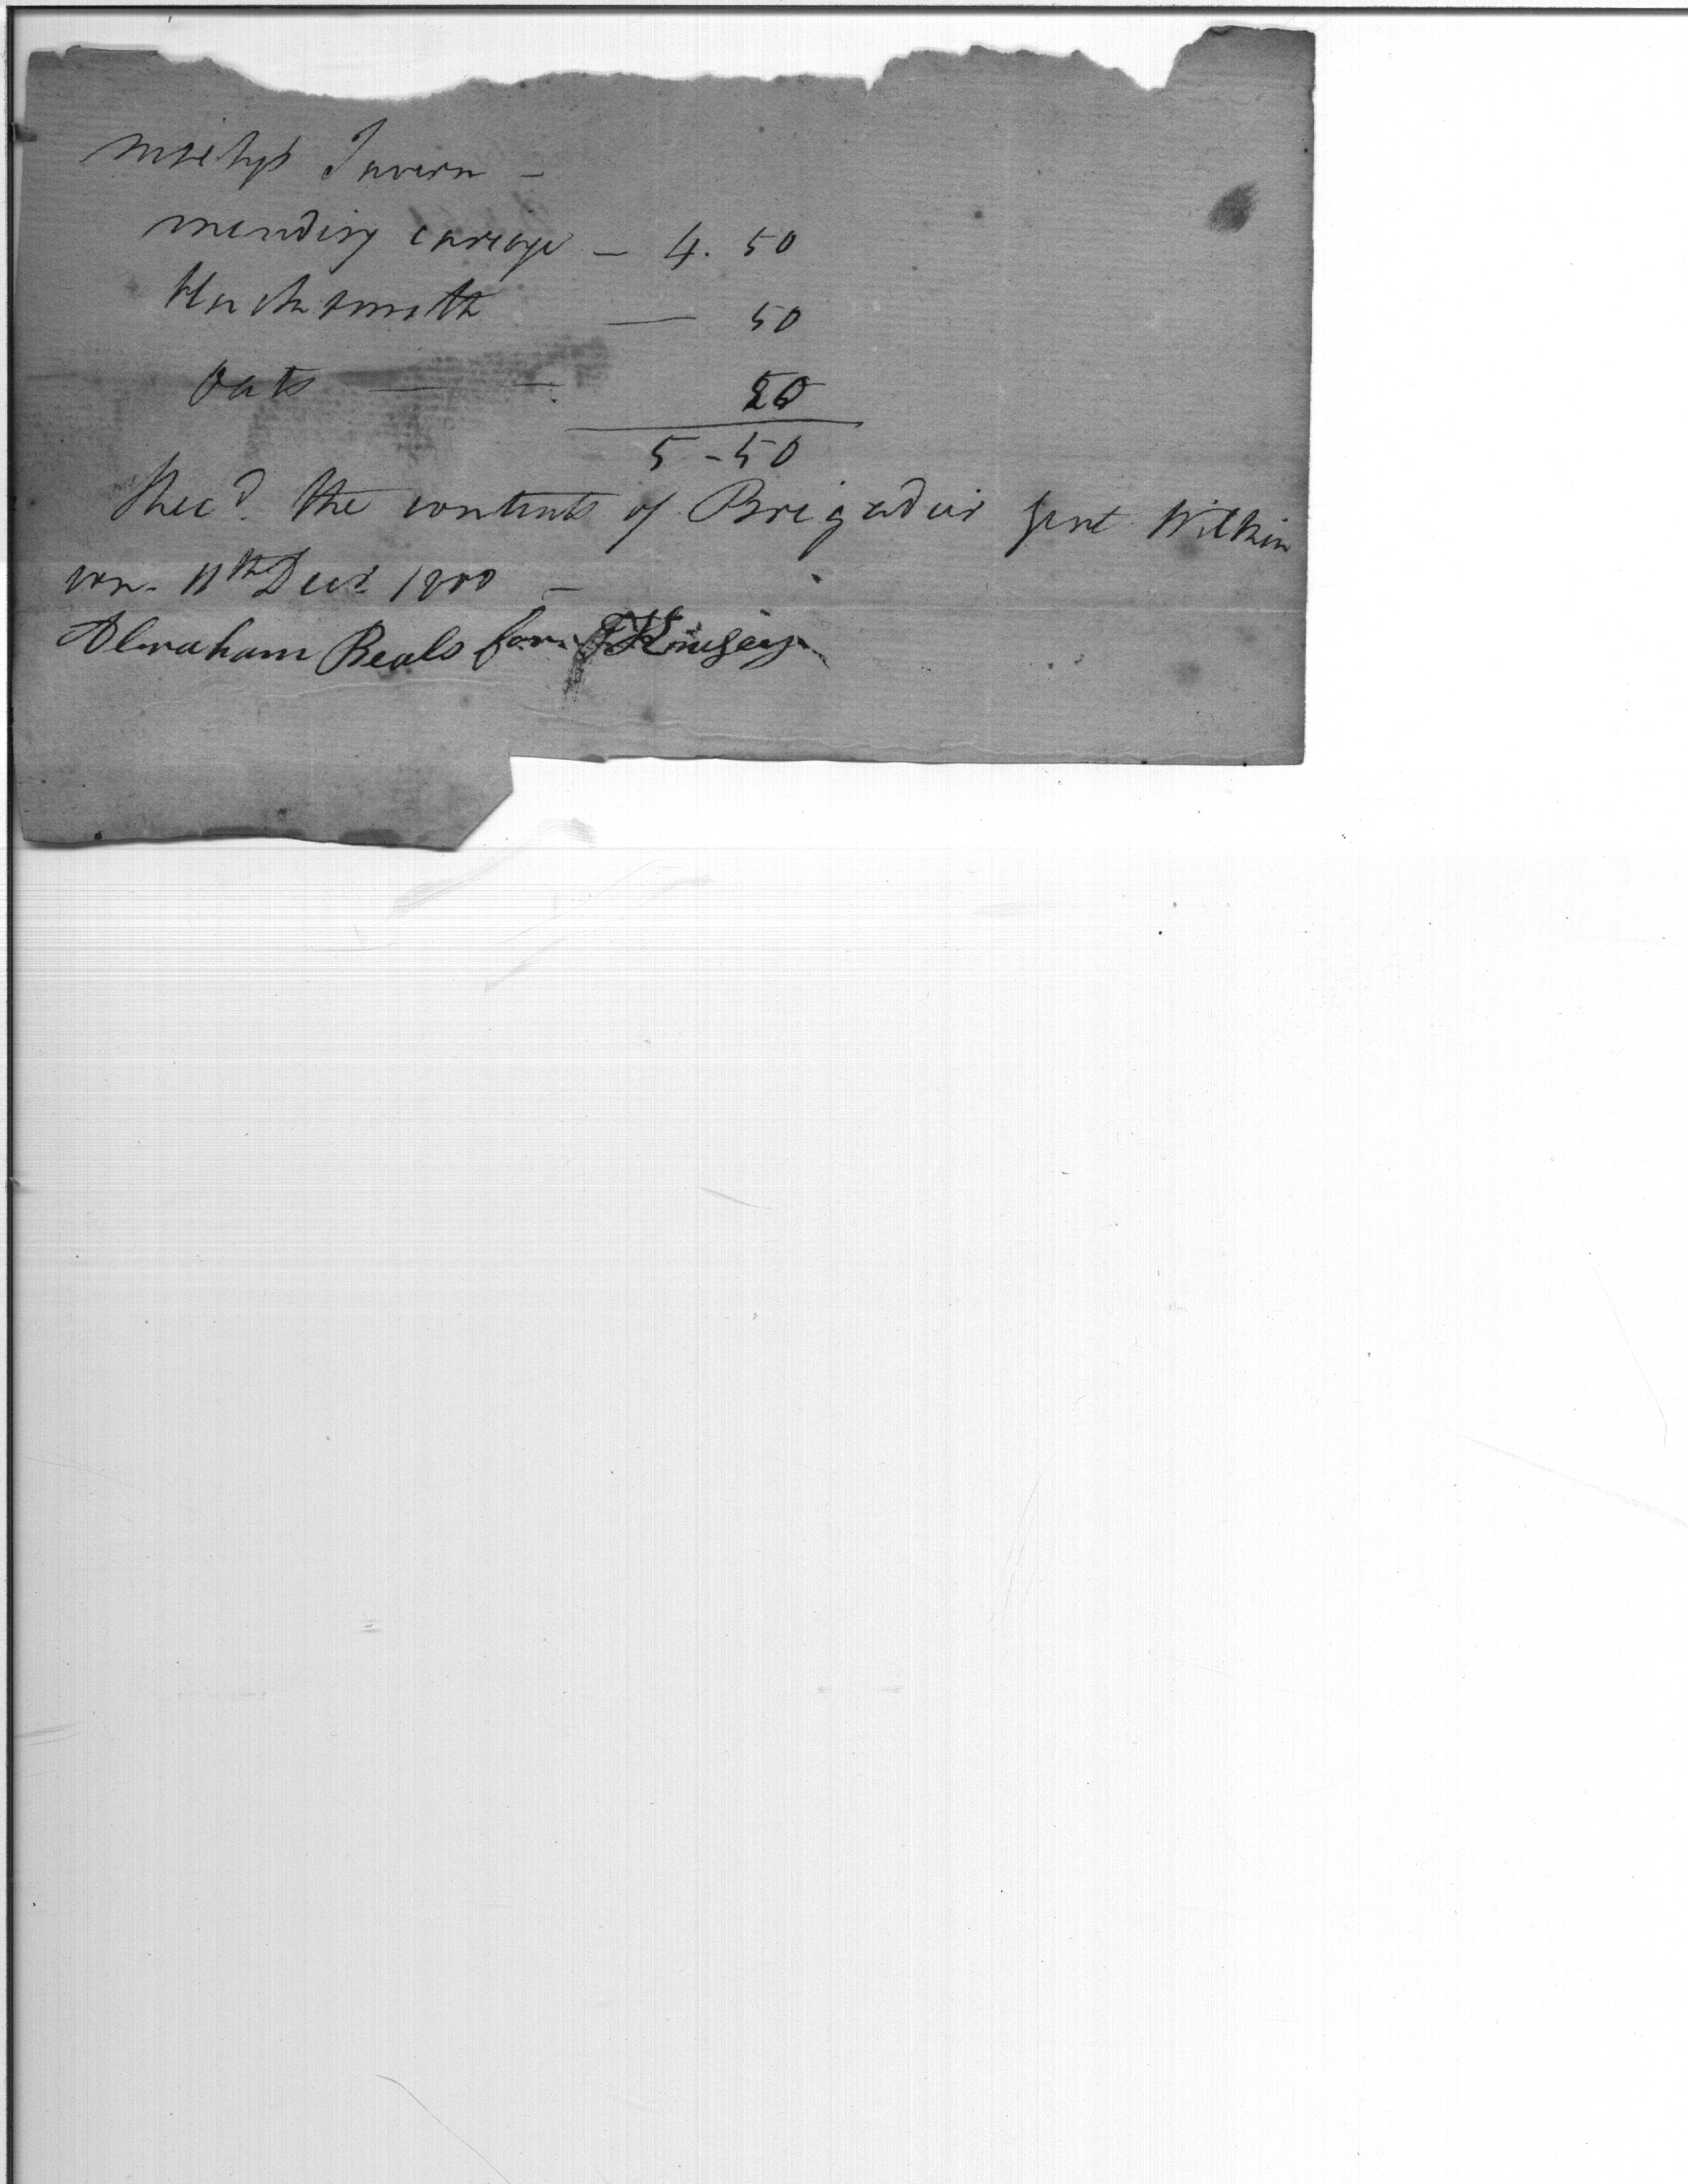 Tavern -
mending cariage - 4. 50
blacksmith — 50
Oats — — 50
5-50
Rec'd. the contents of Brigadeir Genl Wilkin
son. 11th Decr. 1800 -
Abraham Beals for Kinsey